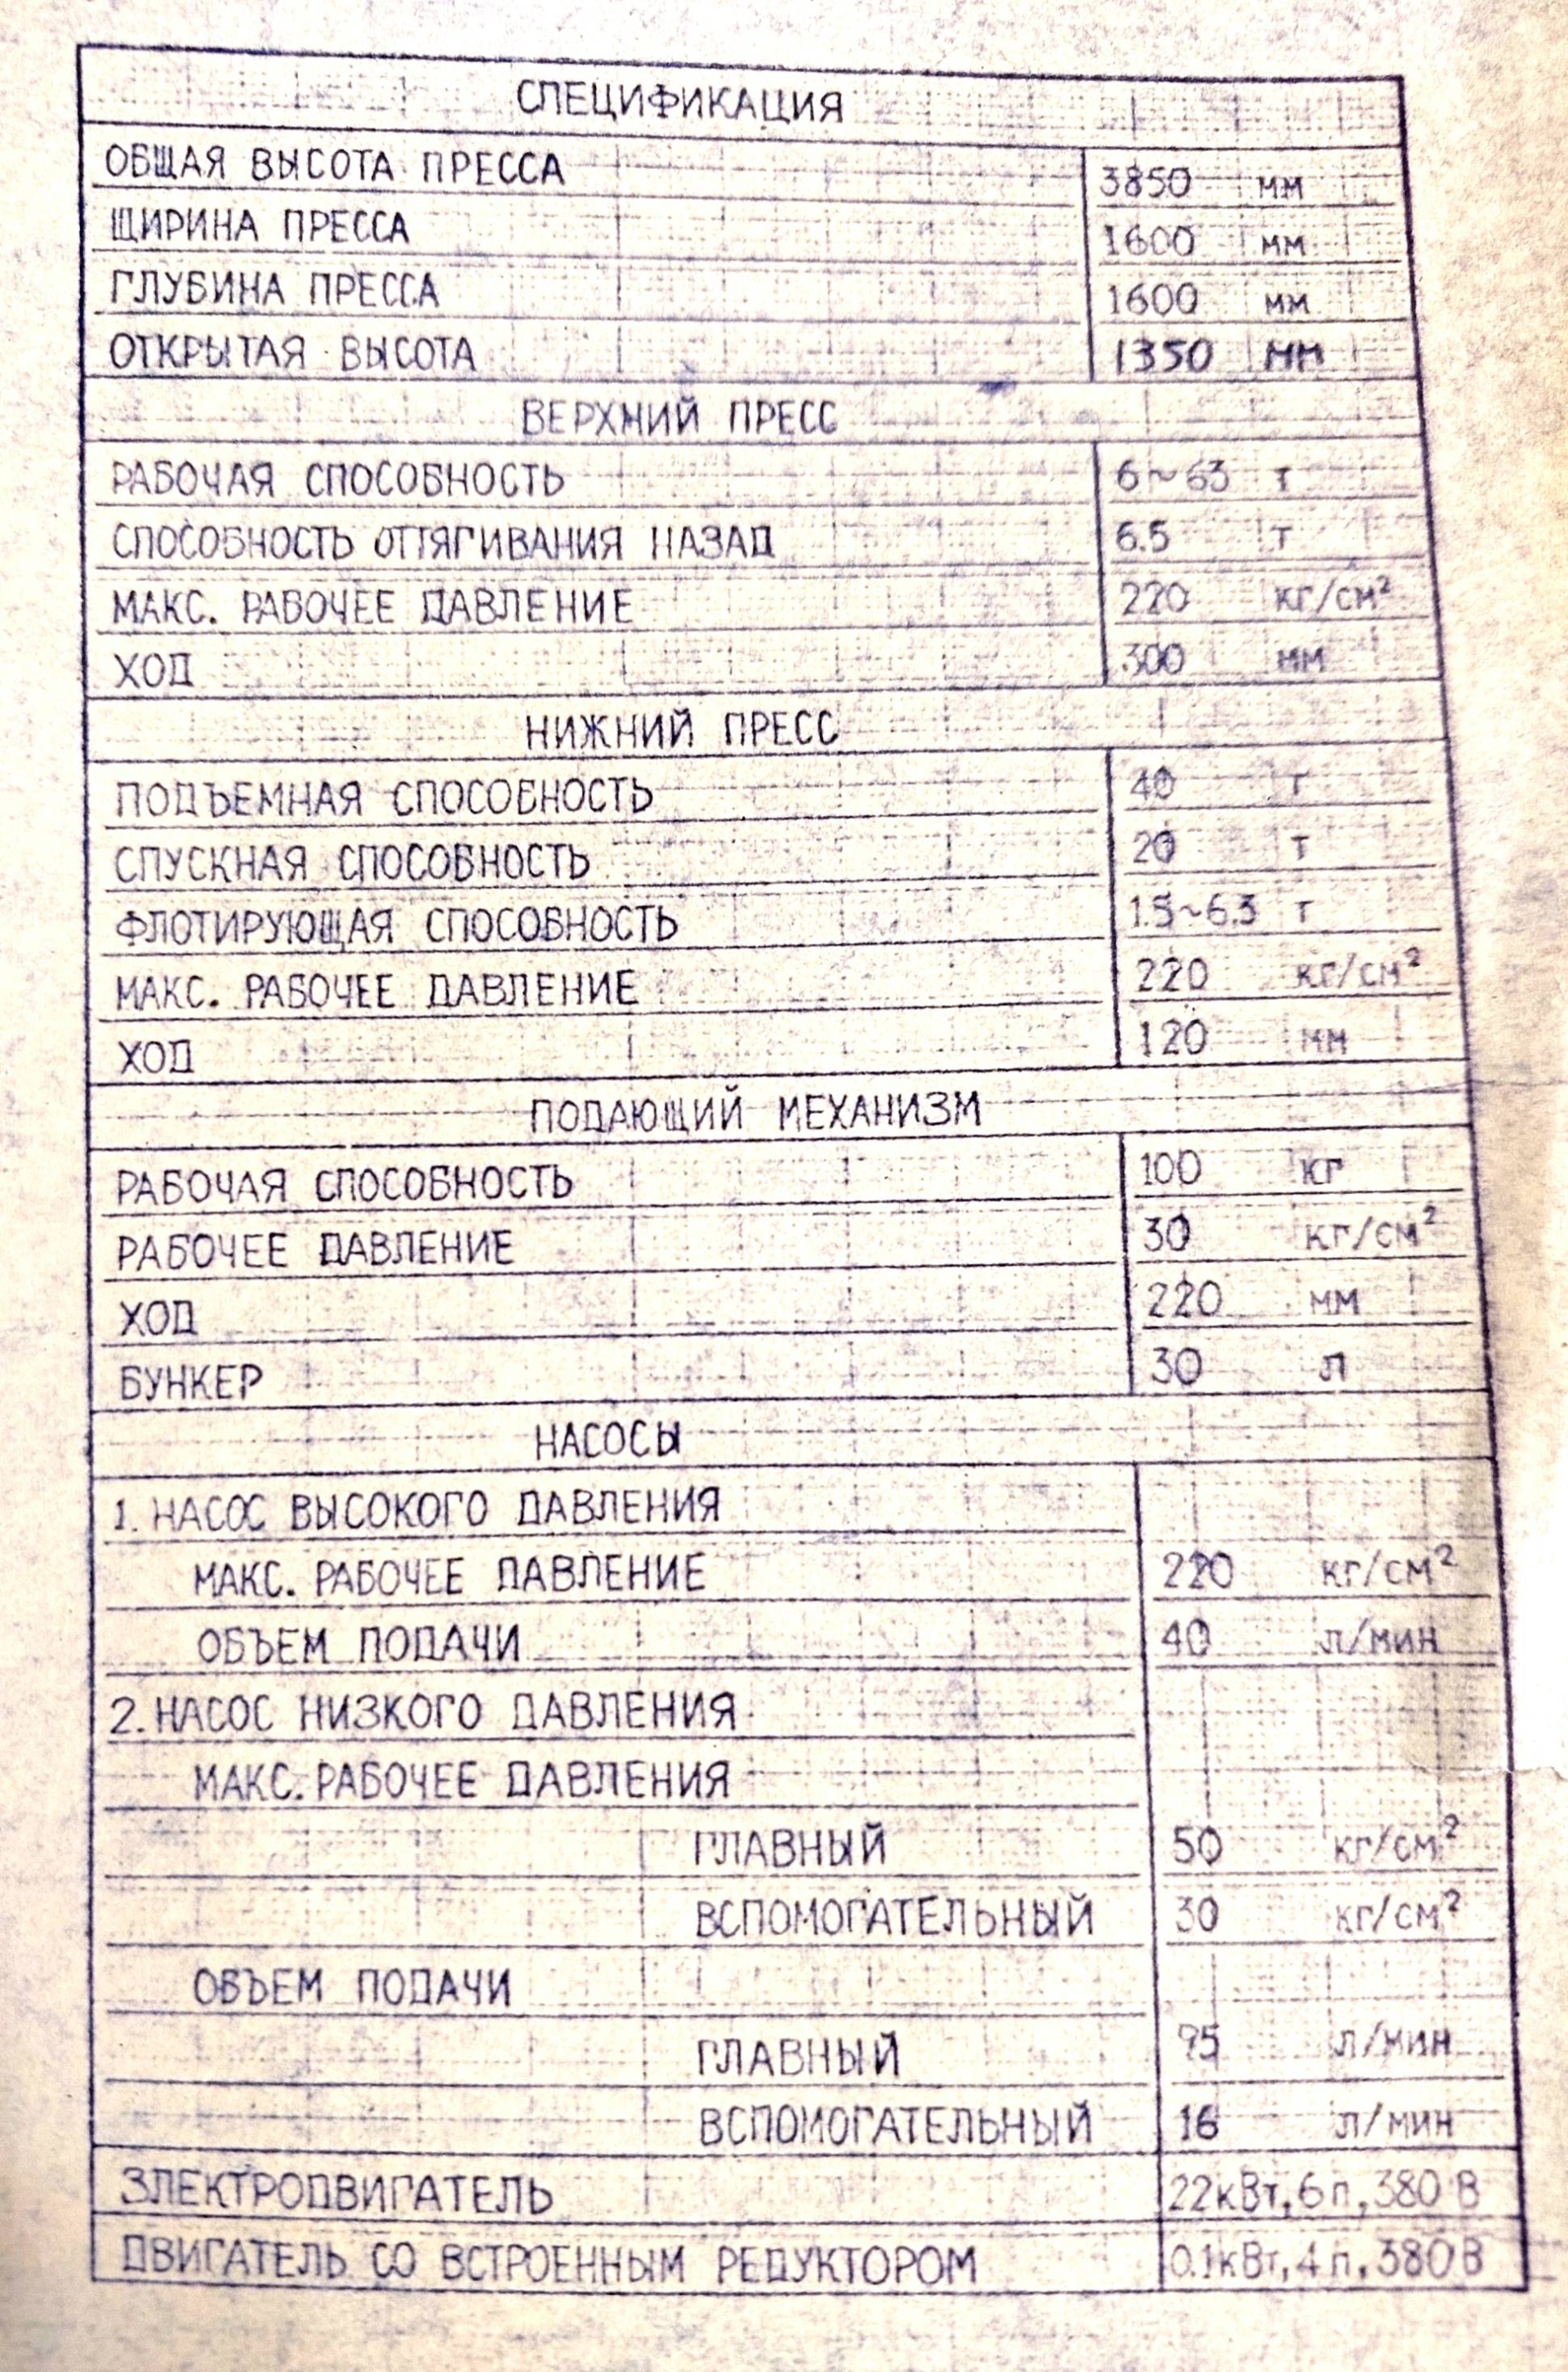 СПЕЦИФИКАЦИЯ
ОБЩАЯ ВЫСОТА ПРЕССА 3850 мм
ЩИРИНА ПРЕССА 1600 мм
ГЛУБИНА ПРЕССА 1600 мм
ОТКРЫТАЯ ВЫСОТА 1350 мм
ВЕРХНИЙ ПРЕСС
РАБОЧАЯ СПОСОБНОСТЬ 6~63 т
СПОСОБНОСТЬ ОТТЯГИВАНИЯ НАЗАД 6.5 т
МАКС. РАБОЧЕЕ ДАВЛЕНИЕ 220 кг/см²
ХОД 300 мм
НИЖНИЙ ПРЕСС
ПОДЪЕМНАЯ СПОСОБНОСТЬ 40 т
СПУСКНАЯ СПОСОБНОСТЬ 20 т
ФЛОТИРУЮЩАЯ СПОСОБНОСТЬ 1.5~6.3 т
МАКС. РАБОЧЕЕ ДАВЛЕНИЕ 220 кг/см²
ХОД 120 мм
ПОДАЮЩИЙ МЕХАНИЗМ
РАБОЧАЯ СПОСОБНОСТЬ 100 кг
РАБОЧЕЕ ДАВЛЕНИЕ 30 кг/см²
ХОД 220 мм
БУНКЕР 30 л
НАСОСЫ
1. НАСОС ВЫСОКОГО ДАВЛЕНИЯ
МАКС. РАБОЧЕЕ ДАВЛЕНИЕ 220 кг/см²
ОБЪЕМ ПОДАЧИ 40 л/мин
2. НАСОС НИЗКОГО ДАВЛЕНИЯ
МАКС. РАБОЧЕЕ ДАВЛЕНИЯ
ГЛАВНЫЙ 50 кг/см²
ВСПОМОГАТЕЛЬНЫЙ 30 кг/см²
ОБЪЕМ ПОДАЧИ
ГЛАВНЫЙ л/мин
ВСПОМОГАТЕЛЬНЫЙ 16 л/мин
ЭЛЕКТРОДВИГАТЕЛЬ 22кВт, 6п, 380 В
ДВИГАТЕЛЬ СО ВСТРОЕННЫМ РЕДУКТОРОМ 0.1кВт, 4п, 380 В